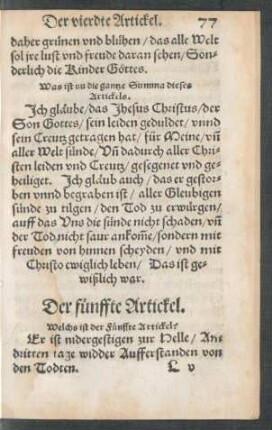 Der vierdte Artickel. 77
daher grünen vnd blühen / das alle Welt
sol jre lust vnd freude daran sehen / Son-
derlich die Kinder Gottes.
Was ist nu die gantze Summa dieses
Artickels.
Jch gläube / das Jhesus Christus / der
Son Gottes / sein leiden geduldet / vnnd
sein Creutz getragen hat / für Meine / vñ
aller Welt sünde / Vñ dadurch aller Chri-
sten leiden vnd Creutz / gesegenet vnd ge-
heiliget. Jch gläub auch / das er gestor-
ben vnnd begraben ist / aller Gleubigen
sünde zu tilgen / den Tod zu erwürgen /
auff das Vns die sünde nicht schaden / vñ
der Tod nicht saur ankom̃e / sondern mit
freuden von hinnen scheyden / vnd mit
Christo ewiglich leben / Das ist ge-
wißlich war.
Der fünffte Artickel.
Welchs ist der Fünffte Artickel?
Er ist nidergestigen zur Helle / An
dritten tage widder Aufferstanden von
den Todten. L v